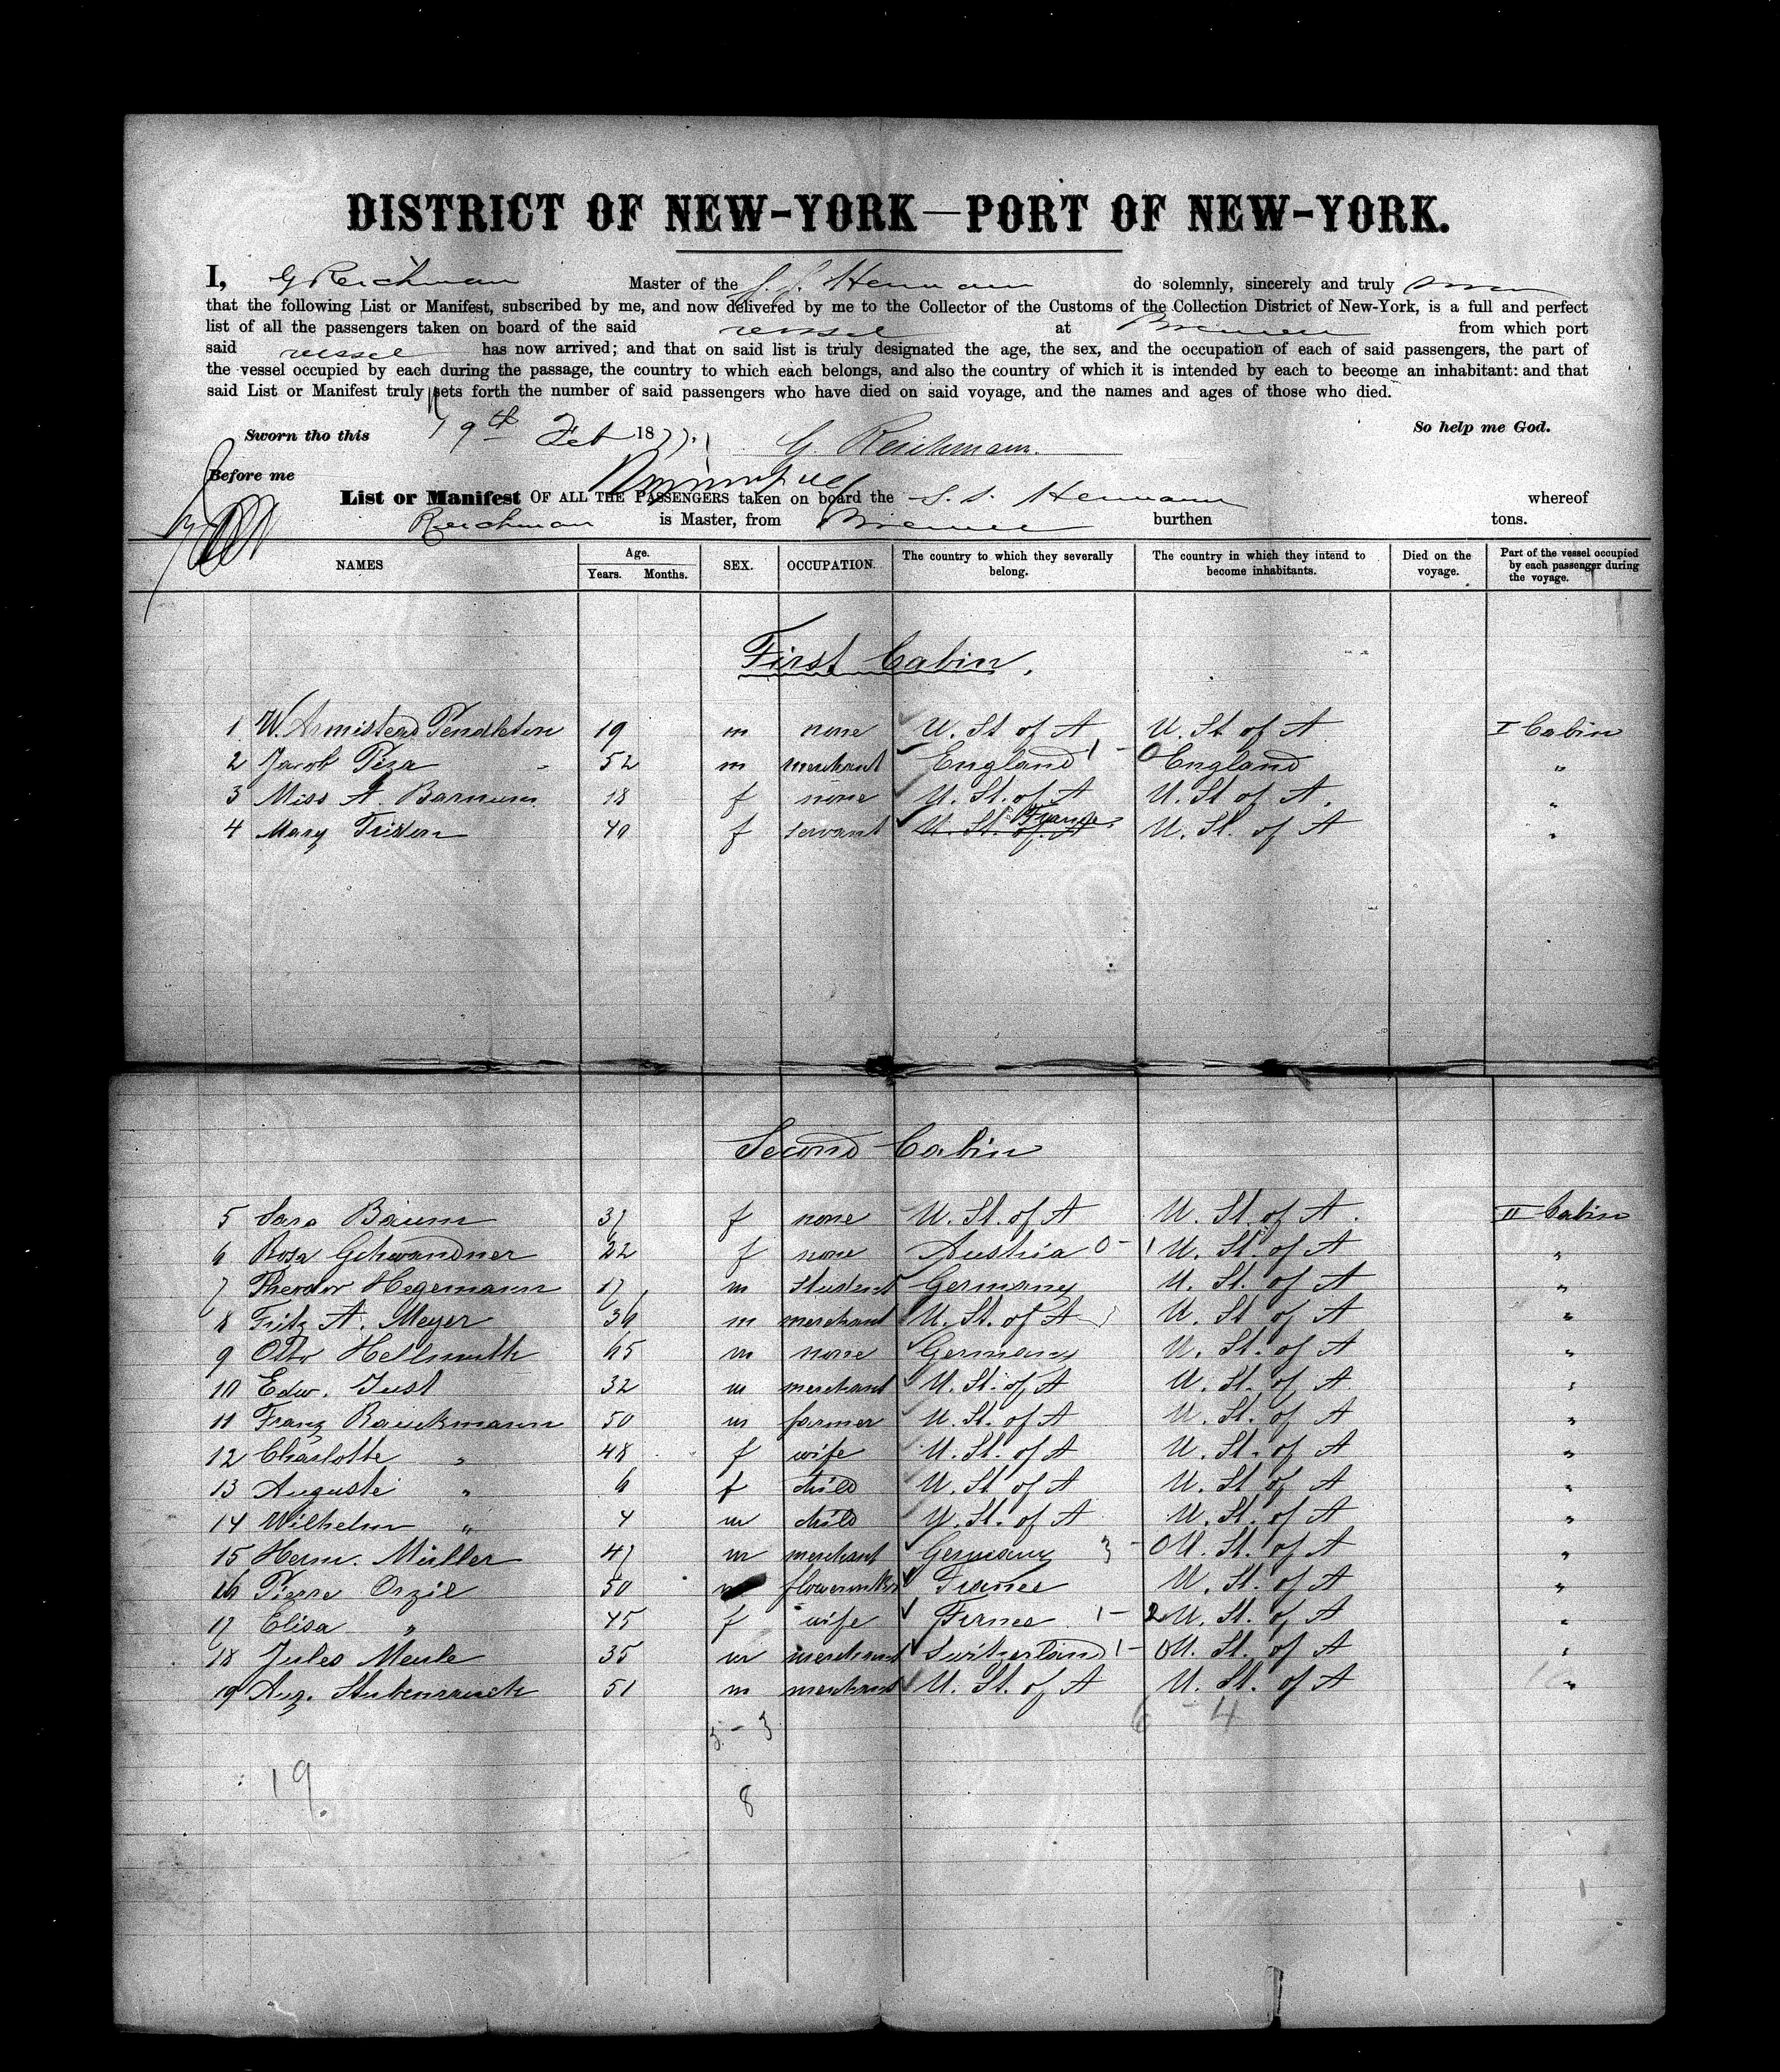 DISTRICT OF NEW-YORK—PORT OF NEW-YORK.
I, G Reichman Master of the S. S. Hermann do solemnly, sincerely and truly swear
that the following List or Manifest, subscribed by me, and now delivered by me to the Collector of the Customs of the Collection District of New-York, is a full and perfect
list of all the passengers taken on board of the said vessel at Bremen from which port
said vessel has now arrived; and that on said list is truly designated the age, the sex, and the occupation of each of said passengers, the part of
the vessel occupied by each during the passage, the country to which each belongs, and also the country of which it is intended by each to become an inhabitant: and that
said List or Manifest truly sets forth the number of said passengers who have died on said voyage, and the names and ages of those who died.
Sworn tho this 19th Feb 1877. G. Reichmann. So help me God.
Before me
List or Manifest OF ALL THE PASSENGERS taken on board the S. S. Hermann whereof
Reichman is Master, from Bremen burthen tons.
NAMES Age. Years. Months. SEX. OCCUPATION. The country to which they severally belong. The country in which they intend to become inhabitants. Died on the voyage. Part of the vessel occupied by each passenger during the voyage.
First Cabin.
1 W. Armistead Pendleton 19 m none U. St of A U. St of A I Cabin
2 Jacob Piza 52 m merchant England 1 - 0 England "
3 Miss A. Barnum 18 f none U. St. of A U. St of A. "
4 Mary 40 f servant U. St. of A France U. St. of A "
Second Cabin
5 Sara Baum 37 f none U. St. of A U. St. of A. II Cabin
6 Rosa Gschwandner 22 f none Austria 0 - 1 U. St. of A "
7 Theodor Hegemann 17 m student Germany U. St. of A "
8 Fritz A. Meyer 36 m merchant U. St. of A U. St. of A "
9 Otto Hellmuth 65 m none Germany U. St. of A "
10 Edw. Just 32 m merchant U. St. of A U. St. of A "
11 Franz 50 m farmer U. St. of A U. St. of A "
12 Charlotte " 48 f wife U. St. of A U. St. of A "
13 Auguste " 6 f child U. St of A U. St of A "
14 Wilhelm " 4 m child U. St. of A U. St. of A "
15 Herm. Müller 47 m merchant Germany 3 - 0 U. St. of A "
16 Pierre Orzil 50 m France U. St. of A "
17 Elisa " 45 f wife France 1 - 2 U. St. of A "
18 Jules Meule 35 m merchant Switzerland 1 - 0 U. St. of A "
19 Aug. Stubenrauch 51 m merchant U. St. of A U. St. of A "
5 - 3 6 - 4
19
8